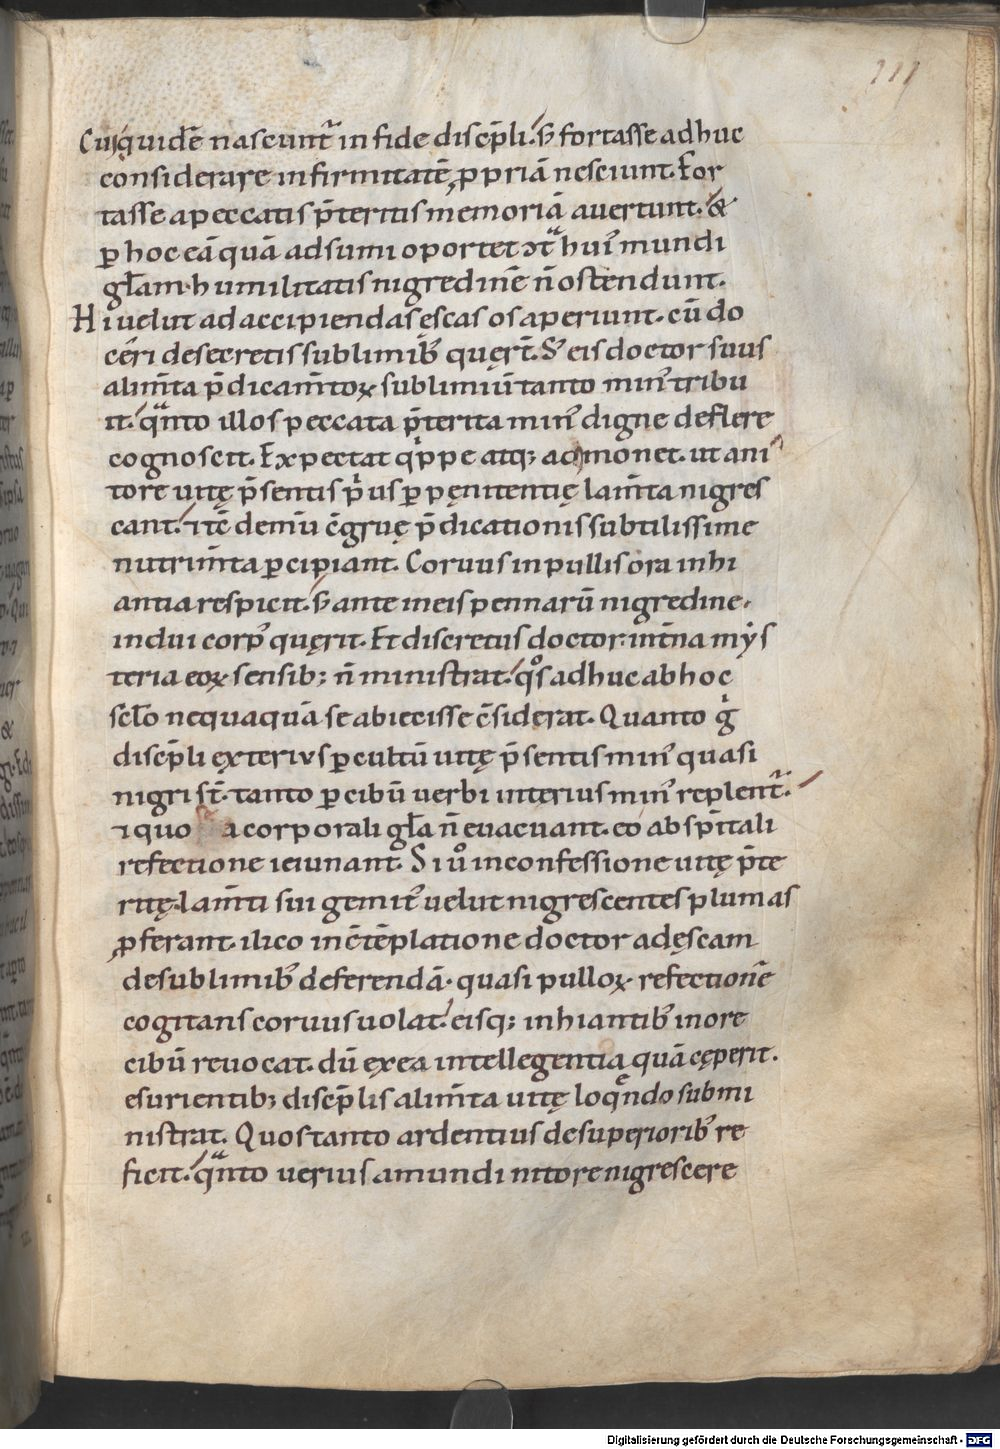 111
Cuiq́uidē nascunt᷑ in fide discip̄li. s; fortasse adhuc
considerare infirmitatē ꝓpriā nesciunt. For
tasse a peccatis p̄teritis memoriā auertunt. &
ꝑ hoc eā quā adsumi oportet ɔtͣ hui᾽ mundi
gl̄am. humilitatis nigredinē n̄ ostendunt.
Hi uelut ad accipiendas ęscas os aperiunt. cū do
cēri de secretis sublimib᾽ quęrt̄. S; eis doctor suus
alim̄ta p̄dicam̄toꝝ sublimiū tanto min᾽ tribu
it. qͣnto illos peccata p̄terita min᾽ digne deflere
cognoscit. Expectat qⁱppe atq; admonet. ut a ni
tore uitę p̄sentis pⁱus ꝑ pęnitentię lam̄ta nigres
cant. ⁊ tc̄ demū c̄gruę p̄dicationis subtilissime
nutrim̄ta ꝑcipiant. Coruus in pullis ora inhi
antia respicit. s; ante in eis pennarū nigredine.
indui corp᾽ quęrit. Et discretus doctor. int̄na mẏs
teria eoꝝ sensib; n̄ ministrat. qͦs adhuc ab hoc
scl̄o nequaquā se abiecisse c̄siderat. Quanto gⁱ
discip̄li exterius ꝑ cultū uitę p̄sentis min᾽ quasi
nigri st̄. tanto ꝑ cibū uerbi interius min᾽ replent᷑.
⁊ quo a corporali gl̄a n̄ euacuant. eo ab spiritali
refectione ieiunant. Si uͦ in confessione uitę p̄te
ritę. lam̄ti sui gemit᾽ uelut nigrescentes plumas
ꝓferant. ilico in c̄tēplatione doctor ad ęscam
de sublimib᾽ deferendā. quasi pulloꝝ refectionē
cogitans coruus uolat. eisq; inhiantib᾽ in ore
cibū reuocat. dū ex ea intellegentia quā cęperit.
esurientib; discip̄lis alim̄ta uitę loqn̄do submi
nistrat. Quos tanto ardentius de superiorib᾽ re
ficit. qͣnto uerius a mundi nitore nigrescere
Digitalisierung gefördert durch die Deutsche Forschungsgemeinschaft - DFG